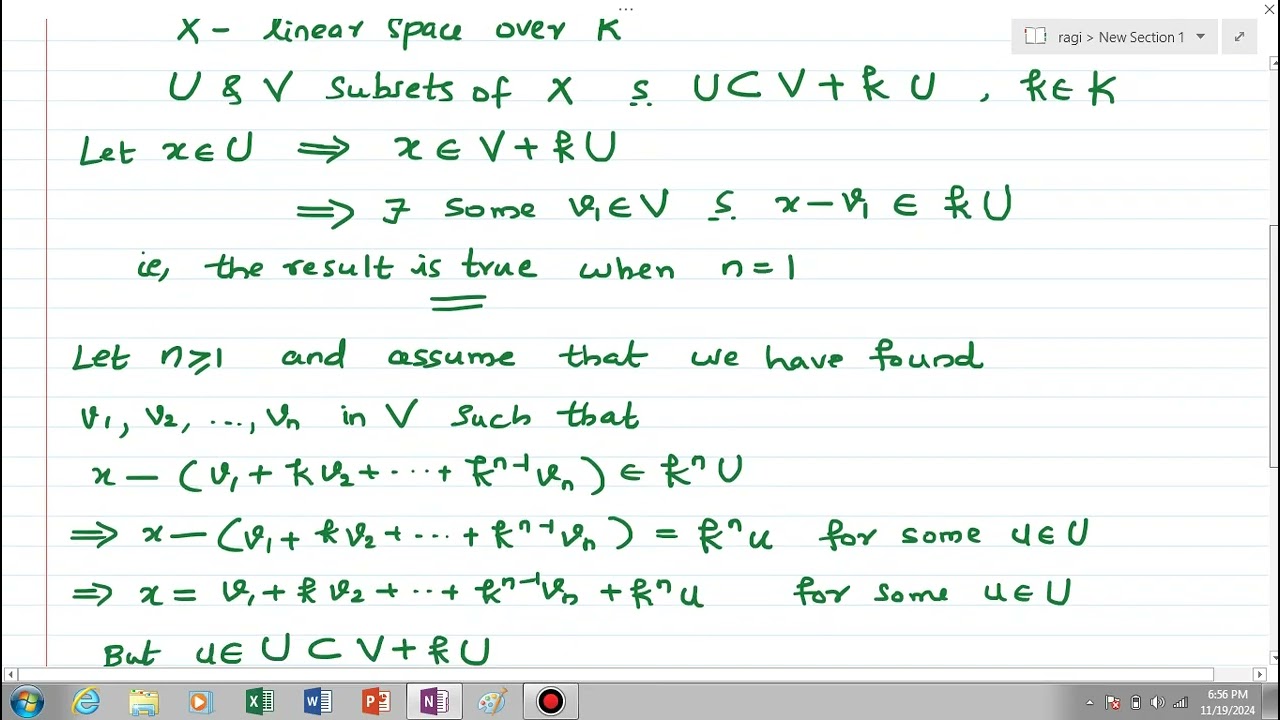 ragi > New Section 1
X - linear space over K
U & V subsets of X s. U ⊂ V + k U , k ∈ K
Let x ∈ U ⟹ x ∈ V + k U
⟹ ∃ some v₁ ∈ V s. x - v₁ ∈ k U
ie, the result is true when n = 1
Let n ⩾ 1 and assume that we have found
v₁, v₂, ..., vₙ in V such that
x - (v₁ + k v₂ + ... + kⁿ⁻¹ vₙ) ∈ kⁿ U
⟹ x - (v₁ + k v₂ + ... + kⁿ⁻¹ vₙ) = kⁿ u for some u ∈ U
⟹ x = v₁ + k v₂ + ... + kⁿ⁻¹ vₙ + kⁿ u for some u ∈ U
But u ∈ U ⊂ V + k U
6:56 PM
11/19/2024